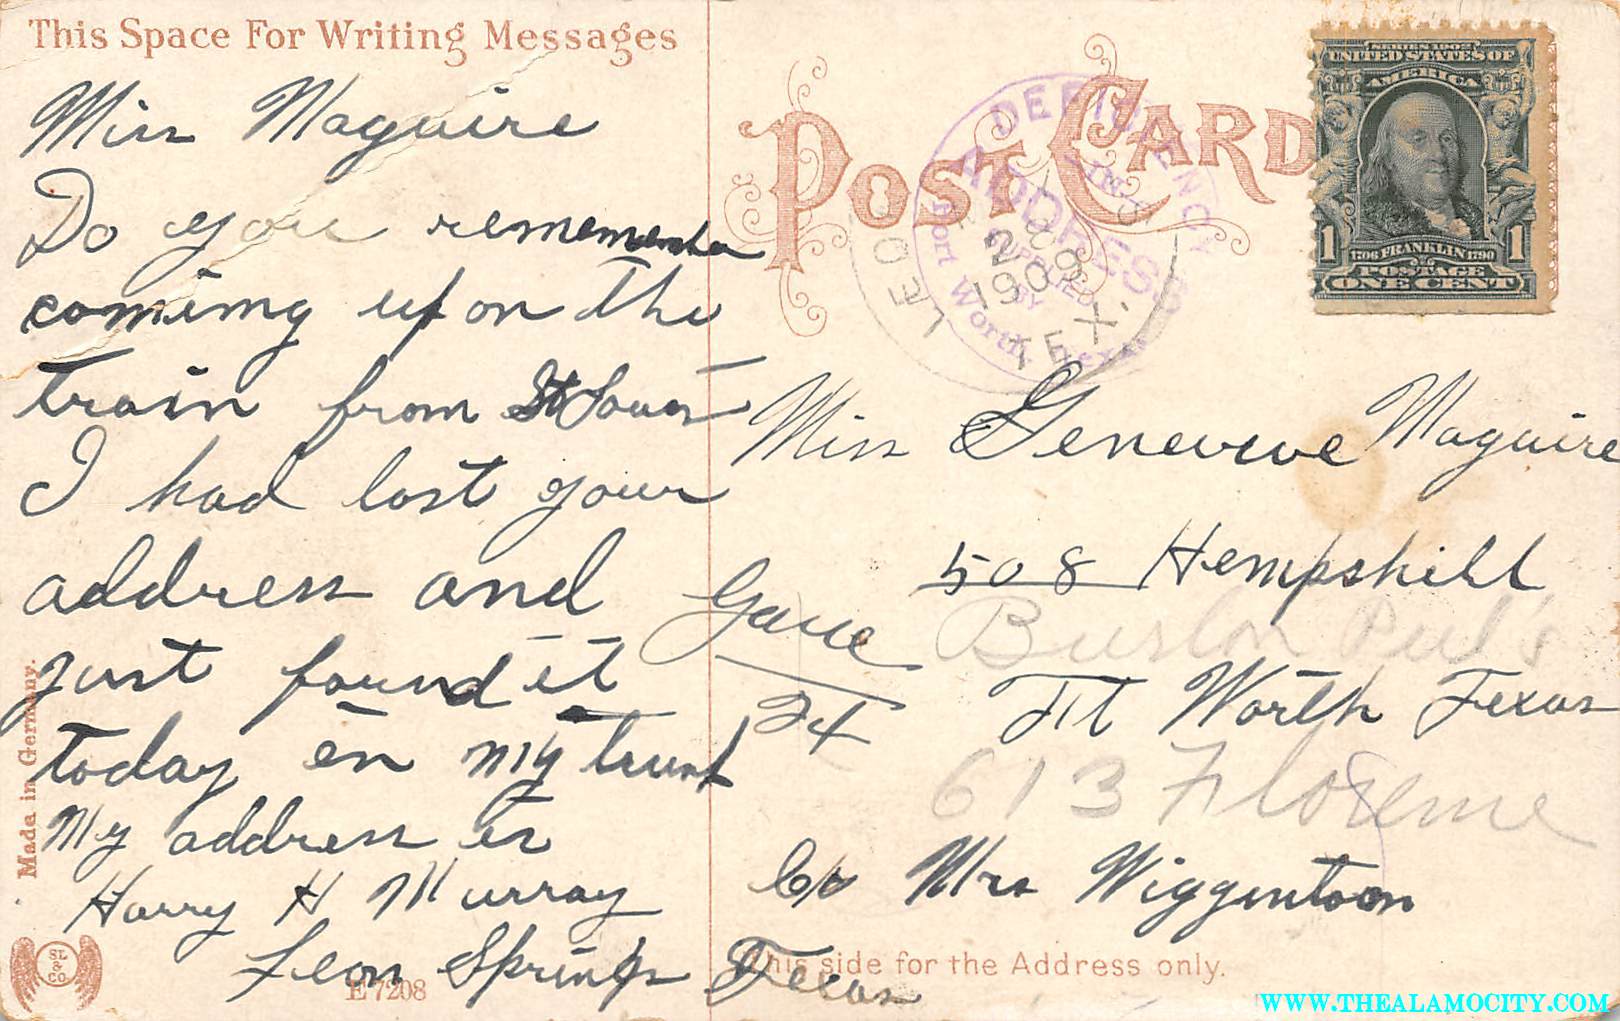 This Space For Writing Messages
Miss Maguire
Do you rememember
coming up on the
train from St Louis
I had lost your
address and
just found it
today in my trunk
My address is
Harry H Murray
Leon Springs Texas
Made in Germany.
SL & CO
E 7208
POST CARD
DEFICIENCY
IN
ADDRESS
SUPPLIED
BY
Fort Worth, Texas
LEON
2
1909
TEX.
SERIES 1902
UNITED STATES OF
AMERICA
1706 FRANKLIN 1790
1 POSTAGE 1
ONE CENT
Miss Genevieve Maguire
508 Hempshill
Burlon Peel's
Ft Worth Texas
613 Florence
c/o Mrs Wiggintoon
This side for the Address only.
WWW.THEALAMOCITY.COM